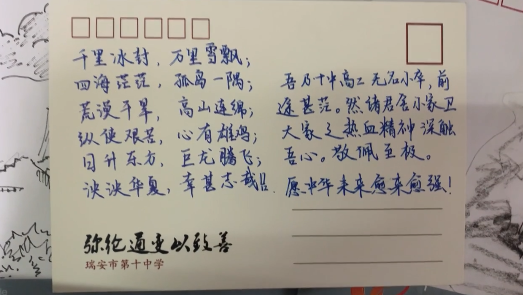 千里冰封，万里雪飘；
四海茫茫，孤岛一隅；
荒漠干旱，高山连绵；
纵使艰苦，心有雄鸡；
日升东方，巨龙腾飞；
泱泱华夏，幸甚志哉!!
吾乃十中高二无名小卒，前
途甚茫。然诸君舍小家卫
大家之热血精神深触
吾心。敬佩至极。
愿中华未来愈来愈强！
弥纶通变以致善
瑞安市第十中学